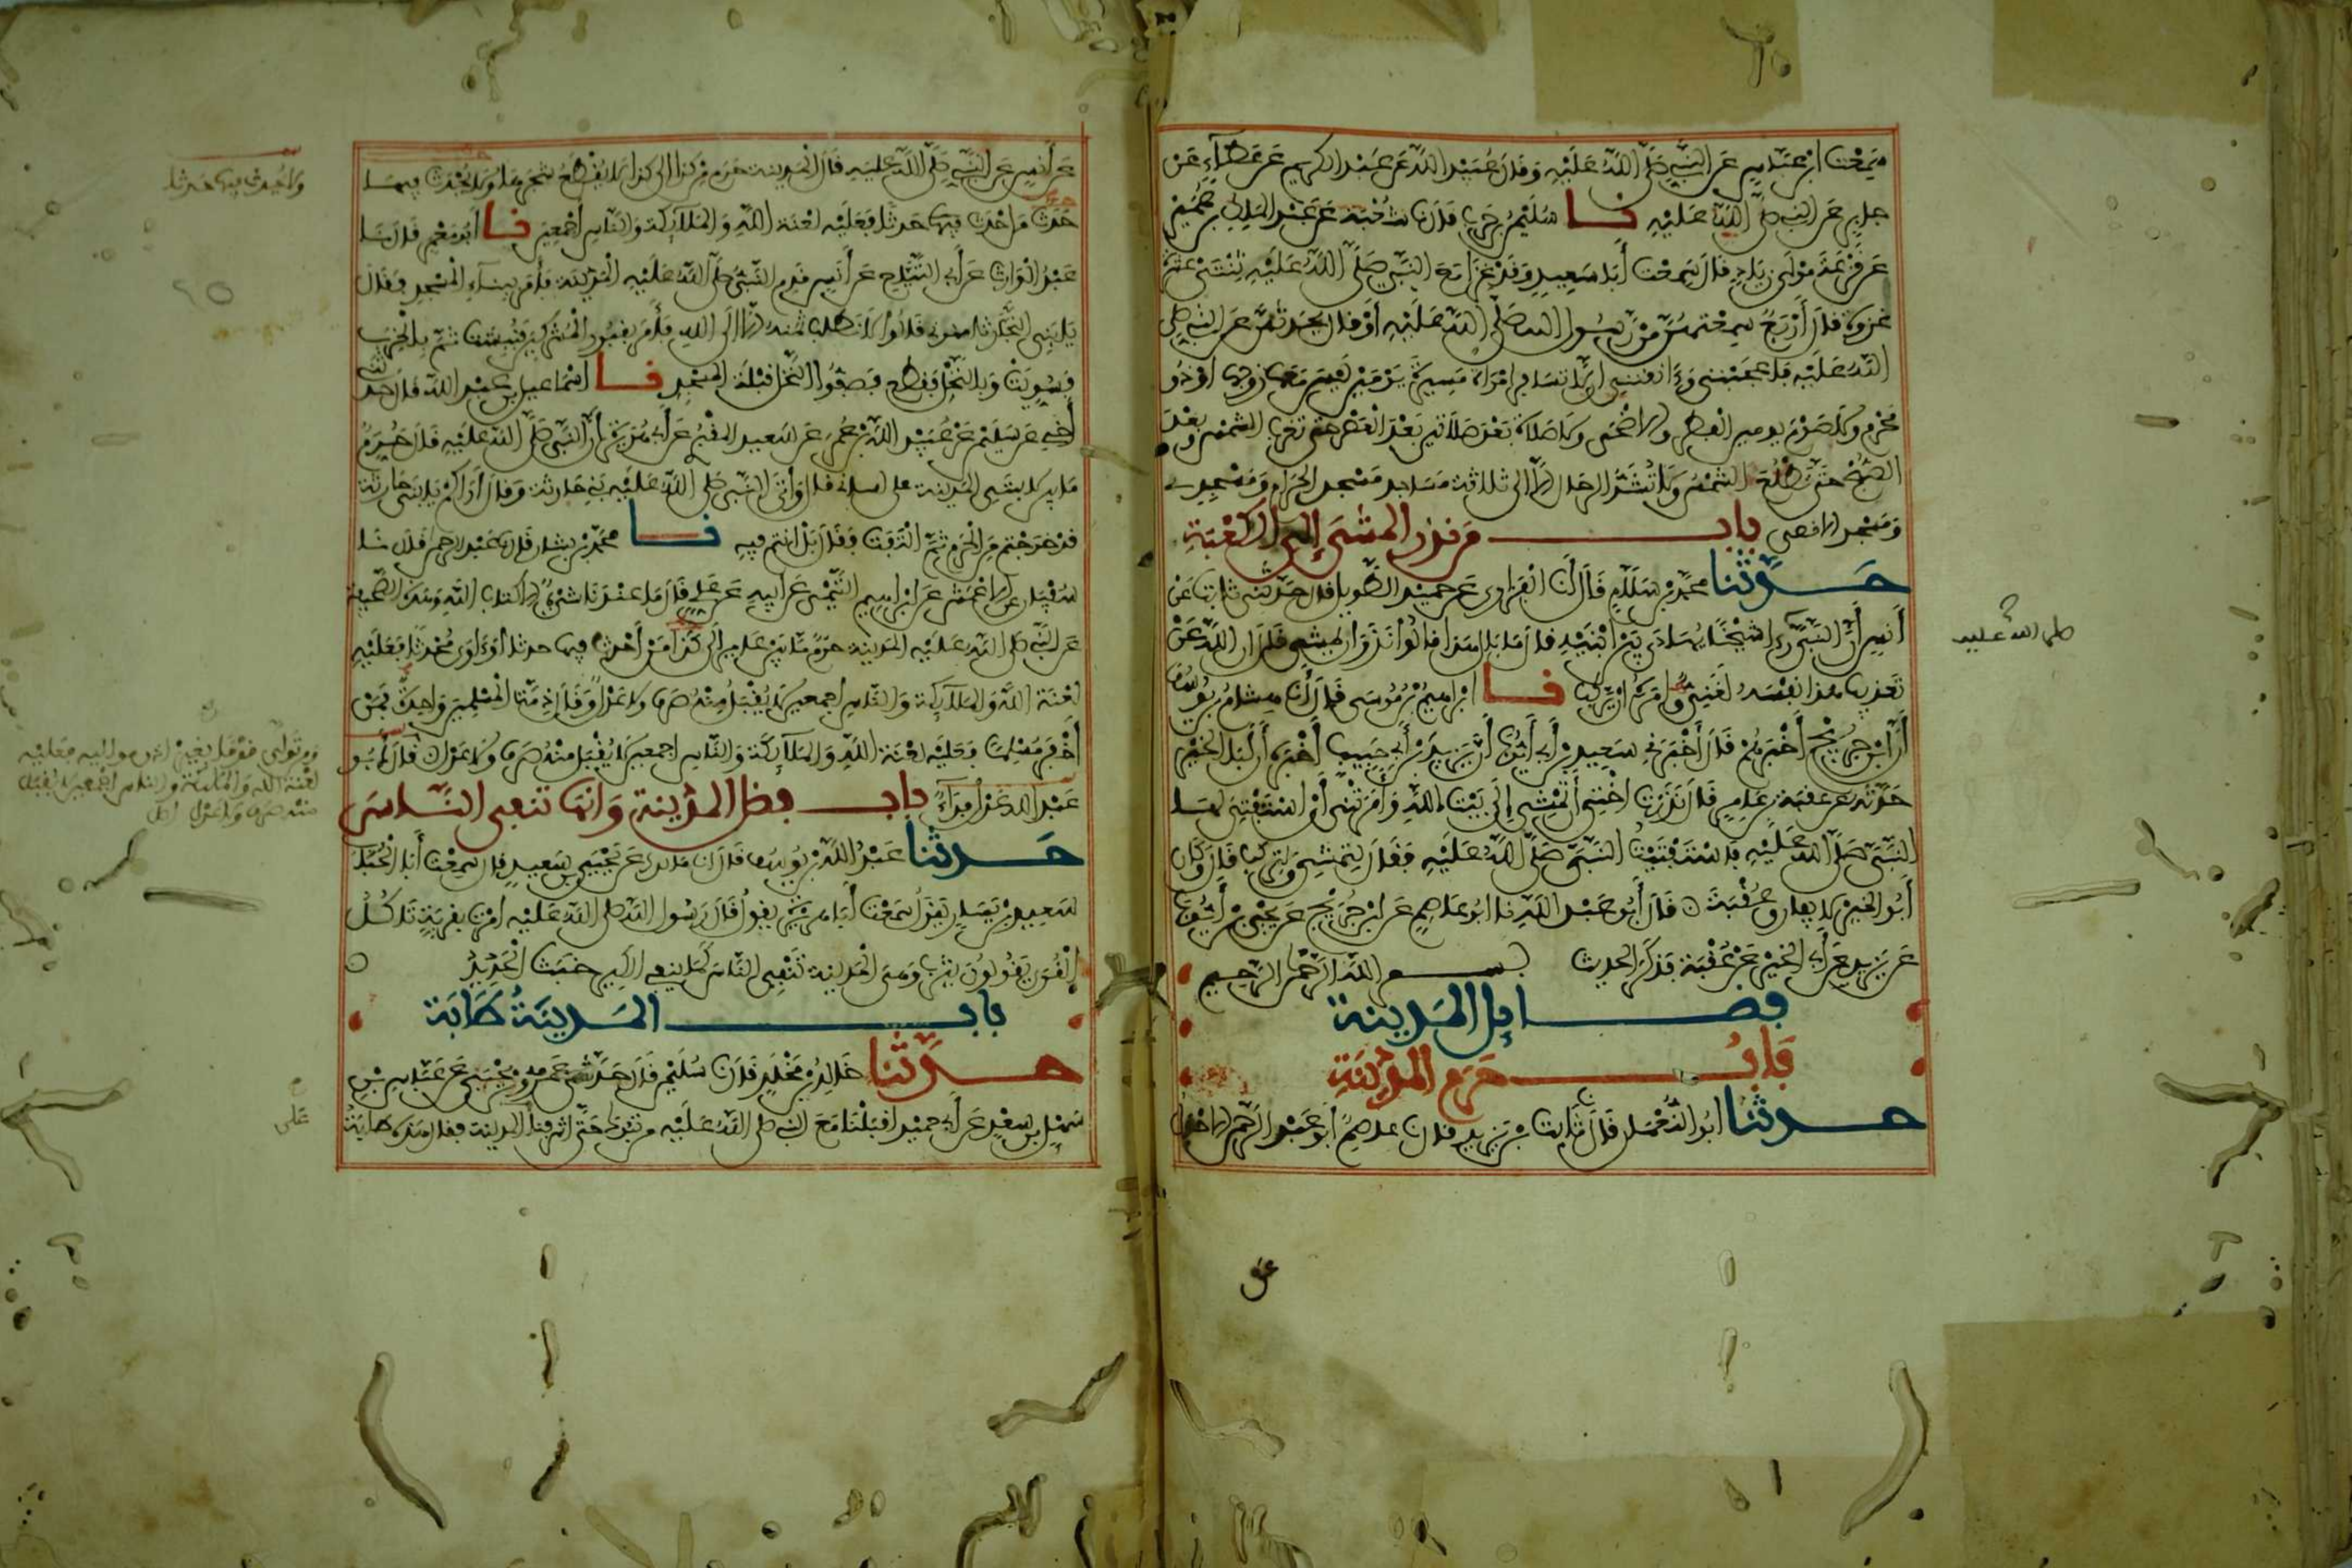 سَمِعْتُ ابْنَ عَبَّاسٍ عَنِ النَّبِيِّ صَلَّى اللَّهُ عَلَيْهِ وَقَالَ عُبَيْدُ اللَّهِ عَنْ عَبْدِ الْكَرِيمِ عَنْ عَطَاءٍ عَنْ
جابر عَنِ النبي صلى اللَّهُ عَلَيْهِ نا سُلَيْمنُ بْنُ حَرْبٍ قَالَ نا شُعْبَة عَنْ عَبْدِ الملك بن عُمَيْرٍ
عَنْ قَزَعَةَ مَوْلَى زِيَادٍ قَالَ سَمِعْتُ أَبَا سَعِيدٍ وَقَدْ غَزَا مَعَ النَّبِيِّ صَلَّى اللَّهُ عَلَيْهِ ثِنْتَيْ عَشْرَةَ
غزوة قال أَرْبَعٌ سَمِعْتُهُنَّ مِنْ رَسُولِ الله صَلَّى اللَّهُ عَلَيْهِ أَوْ قال يُحَدِّثُهُنَّ عَنِ النبي صلى
اللَّهُ عَلَيْهِ فَأَعْجَبْنَنِي وَءَانَقْنَنِي أن لا تسافر امْرَأَة مَسِيرَةَ يَوْمَيْنِ لَيْسَ مَعَهَا زوجها أو ذو
مَحْرَمٍ وَلَا صَوْمَ يومين الفطر والأضحى ولا صلاة بَعْدَ صلاتين بَعْدَ الْعَصْرِ حتى تغرب الشمس وبَعْدَ
الصُّبْحِ حَتَّى تَطْلُعَ الشمس وَلَا تُشَدُّ الرحال إلا إلى ثلاثة مساجد مَسْجِدِ الحَرَامِ وَمَسْجِدِي
وَمَسْجِدِ الأقصى باب من نذر المشي إلى الكعبة
حدثنا مُحَمَّدُ بْنُ سَلَامٍ قَالَ أنا الْفَزَارِي عَنْ حميد الطَّوِيلِ قال حَدَّثَنِي ثابت عَنْ
أَنَسٍ أَنَّ النَّبِيَّ رءا شَيْخًا يُهَادَى بَيْنَ ابْنَيْهِ قال مَا بَالُ هذا قالُوا نَذَرَ أَنْ يمشي قَالَ إن اللَّهَ عَنْ
تعذيب هذا نَفْسَهُ لَغَنِيٌّ وأمره أن يركب نا إبراهيم بْنُ مُوسَى قَالَ أنا هشام بن يُوسُفَ
أَنَّ ابْنَ جُرَيْجٍ أَخْبَرَهُمْ قَالَ أَخْبَرَنِي سَعِيدُ بْنُ أَبِي أَيُّوبَ أَنَّ يَزِيدَ بْنَ أَبِي حَبِيبٍ أَخْبَرَهُ أَنَّ أَبَا الْخَيْرِ
حَدَّثَهُ عن عقبة بن عامر قَالَ نَذَرَتْ أُخْتِي أَنْ تَمْشِيَ إِلَى بَيْتِ اللَّهِ وَأَمَرَتْنِي أَنْ أَسْتَفْتِيَ لَهَا
النَّبِيَّ صَلَّى اللَّهُ عَلَيْهِ فاسْتَفْتَيْتُ النَّبِيَّ صَلَّى اللَّهُ عَلَيْهِ فَقَالَ لِتَمْشِي وَلْتَرْكَب قَالَ وَكَانَ
أَبُو الْخَيْرِ لا يفارق عُقْبَةَ قَالَ أَبُو عَبْدِ اللَّهِ نا أبو عاصم عَنِ ابْنِ جُرَيْجٍ عَنْ يَحْيَى بْنِ أَيُّوبَ
عَنْ يَزِيدَ عَنْ أَبِي الْخَيْرِ عَنْ عُقْبَةَ فَذَكَرَ الْحَدِيث بسم اللَّه الرَّحْمن الرَّحِيم
فضائل المدينة
بَابُ حَرَمِ المدينة
حدثنا أبو النُّعْمَانِ قَالَ نا ثَابِت بْنُ يَزِيدَ قال نا عاصم أَبُو عَبْدِ الرَّحْمنِ الأحول
صلى الله عليه
عن
عَنْ أَنَسٍ عَنِ النَّبِيِّ صَلَّى اللَّهُ عَلَيْهِ قَالَ الْمَدِينَةُ حَرَمٌ مِنْ كذا إلى كذا لا يُقْطَعُ شجرها وَلَا يُحْدَث فِيهَا
حَدَثٌ مَنْ أَحْدَثَ فِيهَا حَدَثًا فَعَلَيْهِ لَعْنَةُ اللَّهِ وَالْمَلَائِكَةِ وَالنَّاسِ أَجْمَعِينَ نا أَبُو مَعْمَرٍ قال نا
عَبْدُ الْوَارِثِ عَنْ أبي التَّيَّاحِ عَنْ أَنَسٍ قَدِمَ النَّبِيُّ صَلَّى اللَّهُ عَلَيْهِ الْمَدِينَةَ فأَمَرَ بِبِنَاءِ الْمَسْجِدِ فقَالَ
يا بني النَّجَّارِ ثامنوني قَالُوا لا نطلب ثمنه إلا إلى الله فأمر بِقُبُورِ الْمُشْرِكِينَ فَنُبِشَتْ ثم بالخرب
فَسُوِّيَتْ وَبِالنَّخْلِ فَقُطِع فَصَفُّوا النَّخْلَ قِبْلَةَ المَسْجِدِ نا إسماعيل بن عَبْدِ اللَّهِ قال حدثني
أَخِي عَنْ سُلَيْمنَ عَنْ عُبَيْدِ اللَّهِ بْنِ عُمَرَ عَنْ سَعِيدٍ المَقْبُرِي عَنْ أَبِي هُرَيْرَةَ أَنَّ النَّبِيَّ صَلَّى اللَّهُ عَلَيْهِ قَالَ حُرِّمَ
مَا بَيْنَ لابتي المدينة على لساني قال وَأَتَى النبي صلى اللَّهُ عَلَيْهِ بني حارثة وقال أَرَاكُمْ يَا بَنِي حَارِثَةَ
قد خَرَجْتُم مِنَ الْحَرَمِ ثُمَّ الْتَفَتَ فقَالَ بَلْ أنتم فيه نا محمد بن بشار قال نا عَبْدُ الرحمن قال نا
سُفْيَانُ عن الأعمش عَنْ إبراهيم التَّيْمِي عَنْ أبيهِ عَنْ عَلِي قَالَ مَا عِنْدَنَا شَيْءٌ إلا كتاب اللَّهِ وَهَذِهِ الصَّحِيفَة
عَنِ النبي صلى اللَّهُ عَلَيْهِ الْمَدِينَة حَرَمٌ مَا بَيْنَ عاير إلى كَذَا مَنْ أَحْدَثَ فِيهَا حدثا أو ءاوى مُحْدِثًا فَعَلَيْهِ
لَعْنَةُ اللَّهِ وَالْمَلَائِكَةِ وَالنَّاسِ أجمعين لَا يُقْبَلُ مِنْهُ صَرْفٌ ولا عَدْلٌ وَقَالَ ذِمَّةُ الْمُسْلِمِينَ وَاحِدَةٌ فَمَنْ
أَخْفَرَ مُسْلِمًا فَعَلَيْهِ لَعْنَةُ اللَّهِ وَالْمَلَائِكَةِ وَالنَّاسِ أجمعين لا يُقْبَلُ مِنْهُ صَرْفٌ ولا عَدْلٌ قال أَبُو
عَبْدِ الله عَدْلٌ فِدَاءٌ باب فضل المدينة وَأنها تنفي النَّاسَ
حدثنا عَبْدُ اللَّهِ بْنُ يُوسُف قَالَ أنا مالك عَنْ يَحْيَى بن سَعِيدٍ قال سَمِعْتُ أَبَا الْحُبَاب
سَعِيد بْنَ يَسَارٍ يَقُولُ سَمِعْتُ أَبَا هُرَيْرَةَ يقول قَالَ رَسُولُ اللَّهِ صلى اللَّهُ عَلَيْهِ أُمِرْتُ بِقَرْيَةٍ تَأْكُلُ
الْقُرَى يَقُولُونَ يثرب وَهِيَ الْمَدِينَة تَنْفِي النَّاسَ كَمَا ينفي الكِير خَبَثَ الْحَدِيدِ
باب المدينَةُ طَابَة
حدثنا خَالِدُ بْنُ مَخْلَدٍ قَالَ نا سُلَيْمنُ قَالَ حَدَّثَنِي عَمْرُو بْنُ يَحْيَى عَنْ عَبَّاسِ بْنِ
سَهْلِ بن سَعْدٍ عَنْ أَبِي حميد أَقْبَلْنَا مَعَ النبي صلى اللَّهُ عَلَيْهِ من تَبُوكَ حَتَّى أشرفنا على المدينة فقال هذه طابَة
ولا يُحدث فيها حدثا
ومن تَوَلَّى قَوْمًا بِغَيْرِ إذن مواليه فعَلَيْهِ
لَعْنَة الله وَالْمَلَائِكَة والناس أَجْمَعِينَ لا يُقبل
منه صَرْف وَلا عَدْل
عَلَى